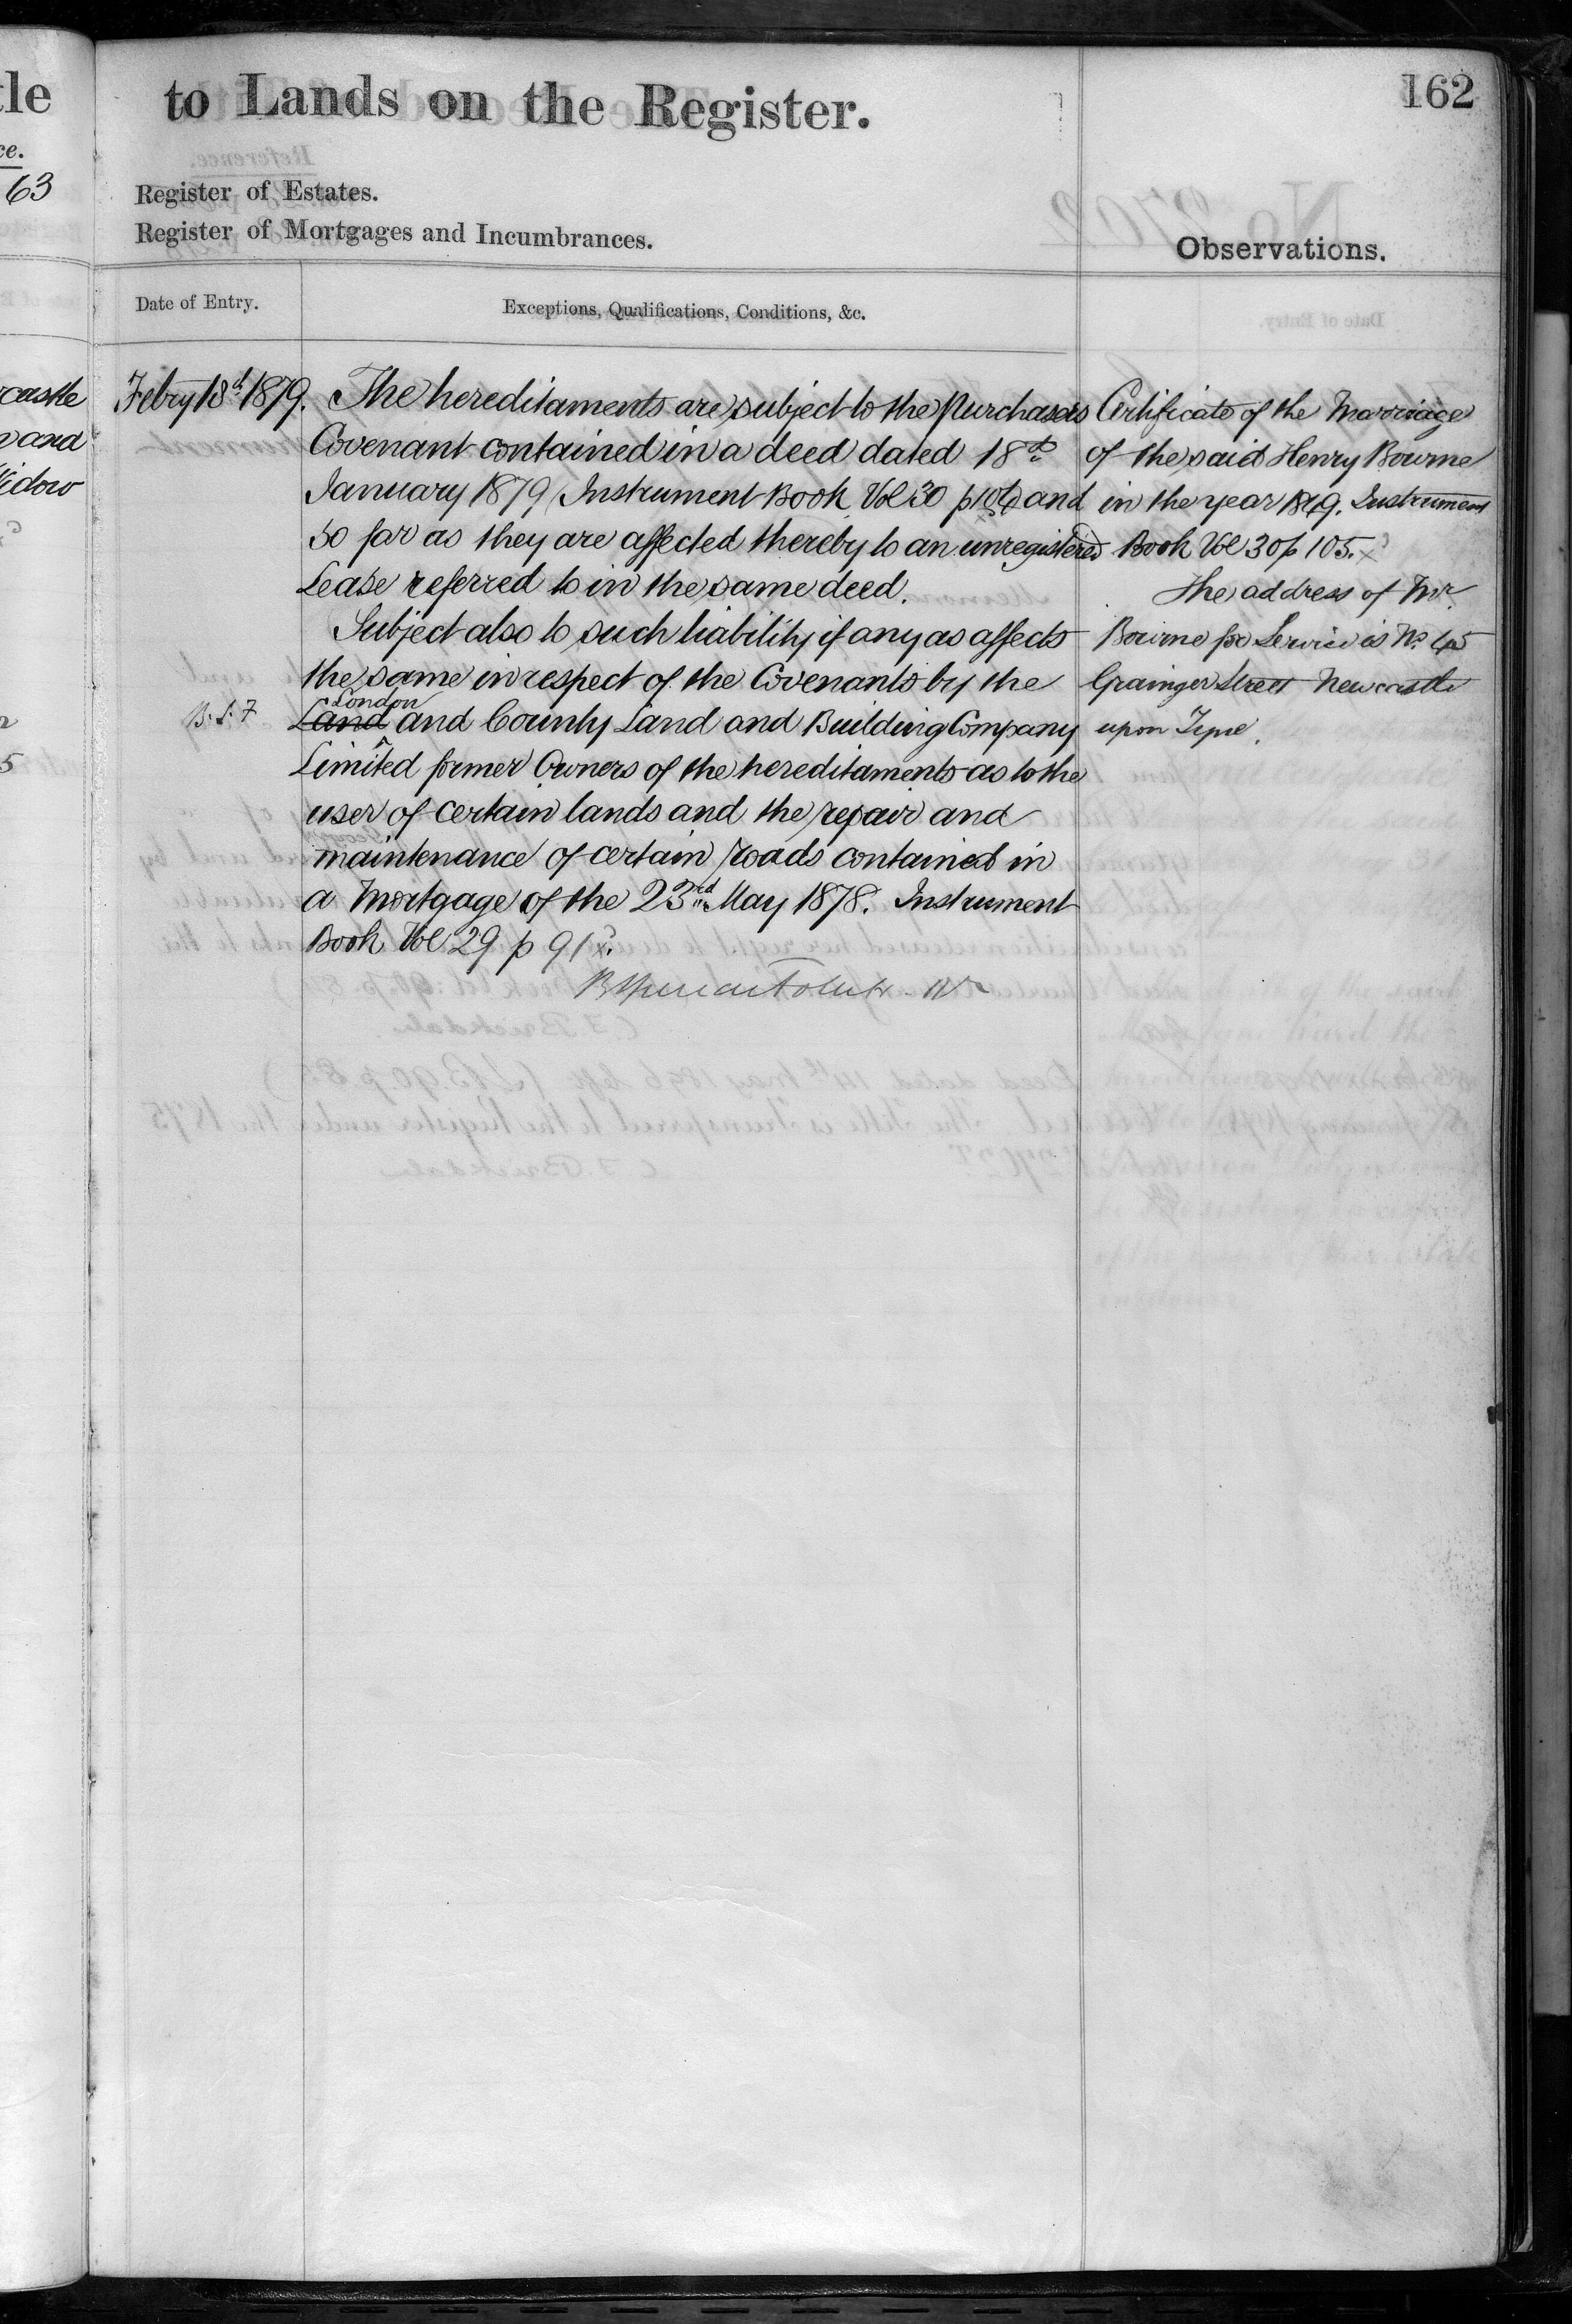 tle
to Lands on the Register.
162
ce.
63
Register of Estates.
Register of Mortgages and Incumbrances.
Observations.
Date of Entry.
Exceptions, Qualifications, Conditions, &c.
Febry 18th 1879.
The hereditaments are subject to the Purchasers
Covenant contained in a deed dated 18th
January 1879 Instrument Book Vol 30 p and
so far as they are affected thereby to an unregistered
Lease referred to in the same deed.
Subject also to such liability if any as affects
the same in respect of the Covenants by the
London
B. S. F
Land and County Land and Building Company
Limited former Owners of the hereditaments as to the
user of certain lands and the repair and
maintenance of certain roads contained in
a Mortgage of the 23rd May 1878. Instrument
Book Vol 29 p 91
Certificate of the Marriage
of the said Henry Bourne
in the year Instrument
Book Vol 30 p 105.
The address of Mr.
Bourne for Service is No. 45
Grainger Street Newcastle
upon Tyne.
castle
and
Widow
5